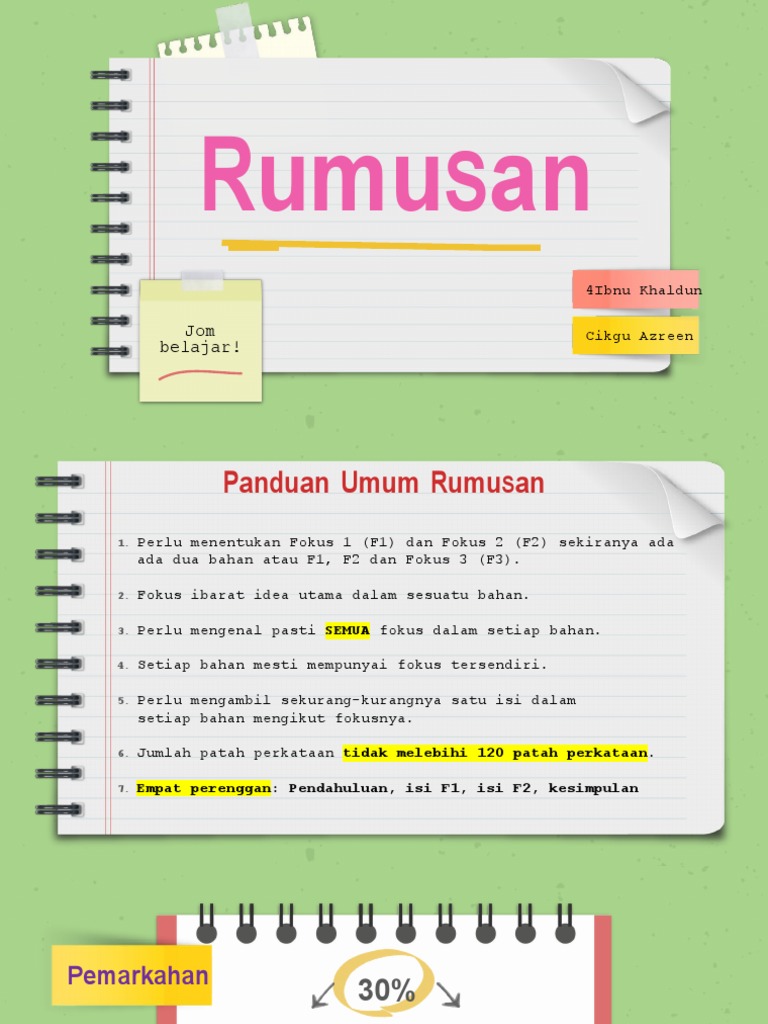 Rumusan
4Ibnu Khaldun
Jom
belajar!
Cikgu Azreen
Panduan Umum Rumusan
1. Perlu menentukan Fokus 1 (F1) dan Fokus 2 (F2) sekiranya ada
ada dua bahan atau F1, F2 dan Fokus 3 (F3).
2. Fokus ibarat idea utama dalam sesuatu bahan.
3. Perlu mengenal pasti SEMUA fokus dalam setiap bahan.
4. Setiap bahan mesti mempunyai fokus tersendiri.
5. Perlu mengambil sekurang-kurangnya satu isi dalam
setiap bahan mengikut fokusnya.
6. Jumlah patah perkataan tidak melebihi 120 patah perkataan.
7. Empat perenggan: Pendahuluan, isi F1, isi F2, kesimpulan
Pemarkahan
30%